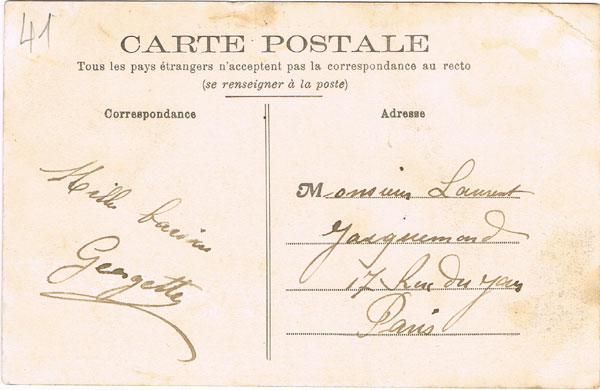 41
CARTE POSTALE
Tous les pays étrangers n'acceptent pas la correspondance au recto
(se renseigner à la poste)
Correspondance
Mille baisers
Georgette
Adresse
Monsieur Laurent
Jacquemond
17 Rue du
Paris